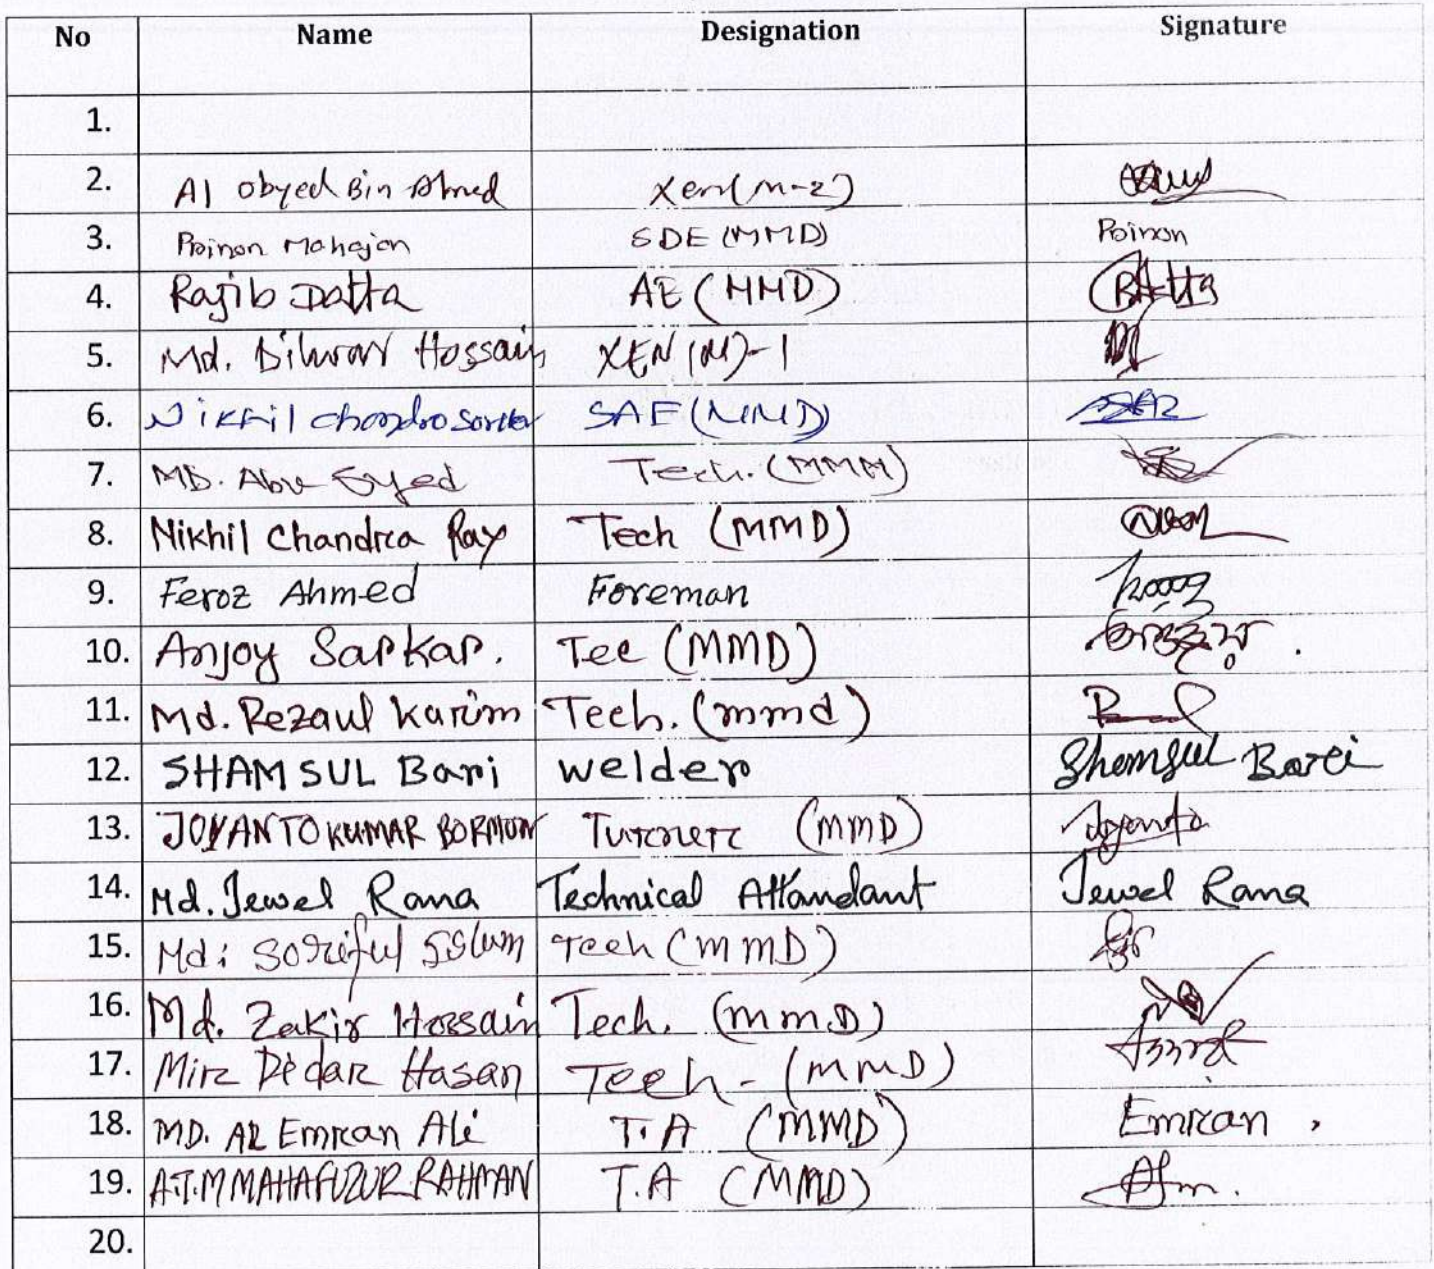 No Name Designation Signature
1.
2. Al Obyed Bin Ahmed Xen(M-2)
3. Poinon Mahajan SDE (MMD) Poinon
4. Rajib Datta AE (MMD)
5. Md. Dilwar Hossain XEN (M)-1
6. Nikhil Chandro Sarker SAE (MMD)
7. MD. Abu Syed Tech. (MMM)
8. Nikhil Chandra Ray Tech (MMD)
9. Feroz Ahmed Foreman
10. Anjoy Sarkar. Tec (MMD)
11. Md. Rezaul Karim Tech. (mmd)
12. SHAMSUL Bari welder Shamsul Bari
13. JOYANTO KUMAR BORMON Turner (MMD) Joyanto
14. Md. Jewel Rana Technical Attandant Jewel Rana
15. Md: Soriful Islam Tech (MMD)
16. Md. Zakir Hossain Tech. (mmD)
17. Mir Didar Hasan Tech - (MMD)
18. MD. AL Emran Ali T.A (MMD) Emran
19. A.T.M MAHAFUZUR RAHMAN T.A (MMD)
20.